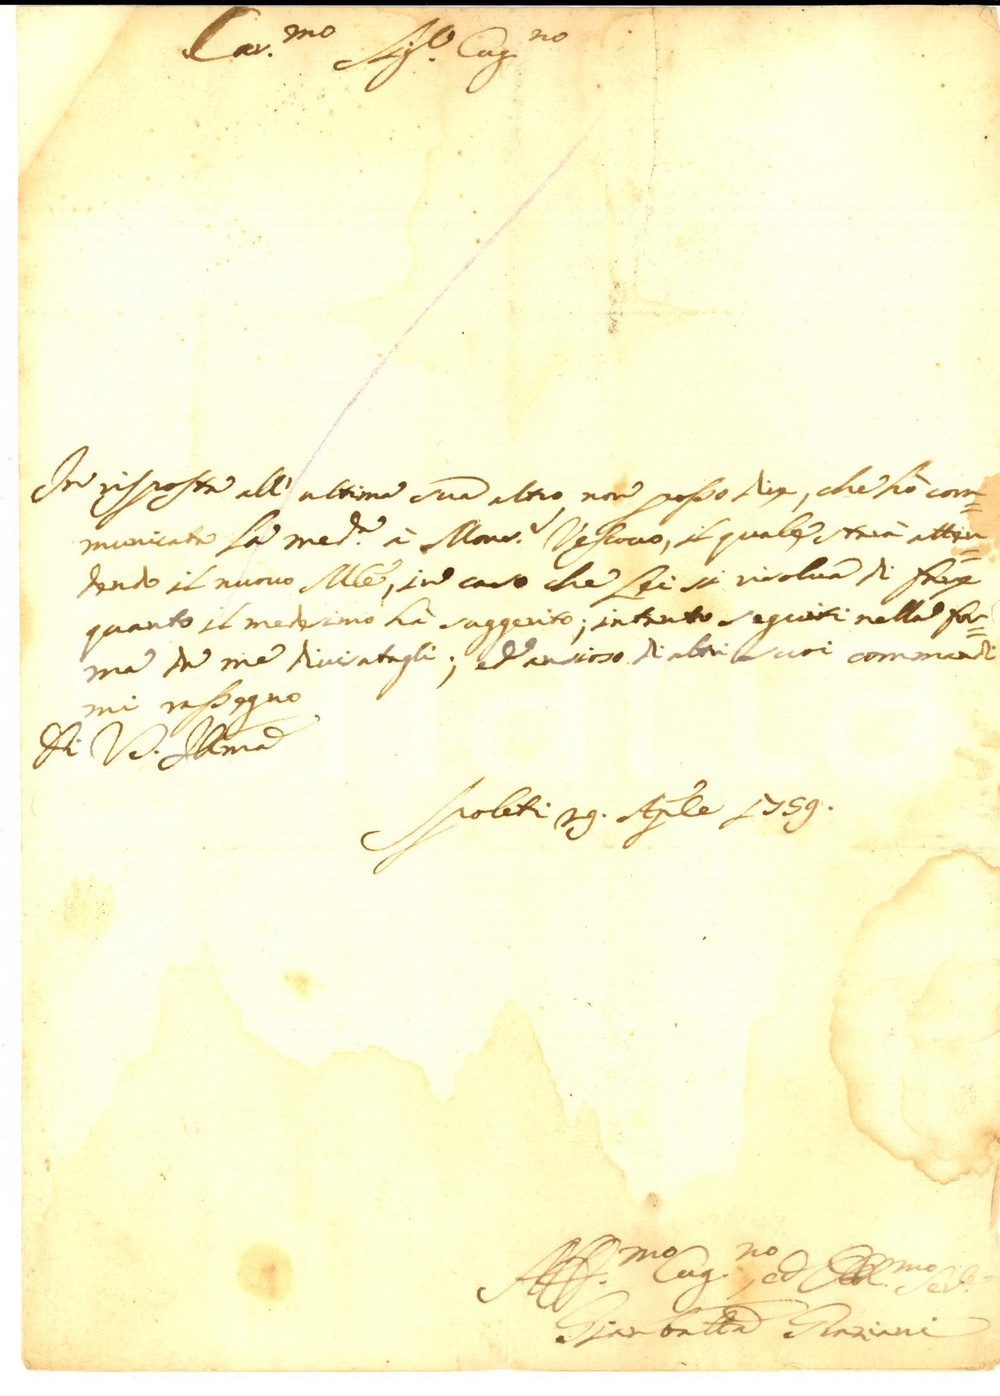 Car.mo Sig.e Cug.no
In risposta all' ultima sua altro non posso dire, che hò com=
municata la med.a à Mons.r Vescovo, il quale starà atten=
dendo il nuovo Mse, in caso che Lei si risolva di fare
quanto il medesimo hà suggerito; intanto seguiti nella for=
ma da me divisatagli; ed ansioso di altri suoi commandi
mi rassegno
Di V. S. Illma
Spoleti 29. Aprile 1759.
Aff.mo Cug.no, ed Obl.mo Ser.e
Gianbatta Graziani